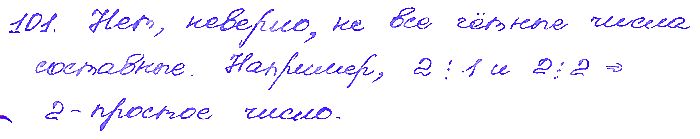 101. Нет, неверно, не все чётные числа
составные. Например, 2 ⋮ 1 и 2 ⋮ 2 ⇒
2 - простое число.